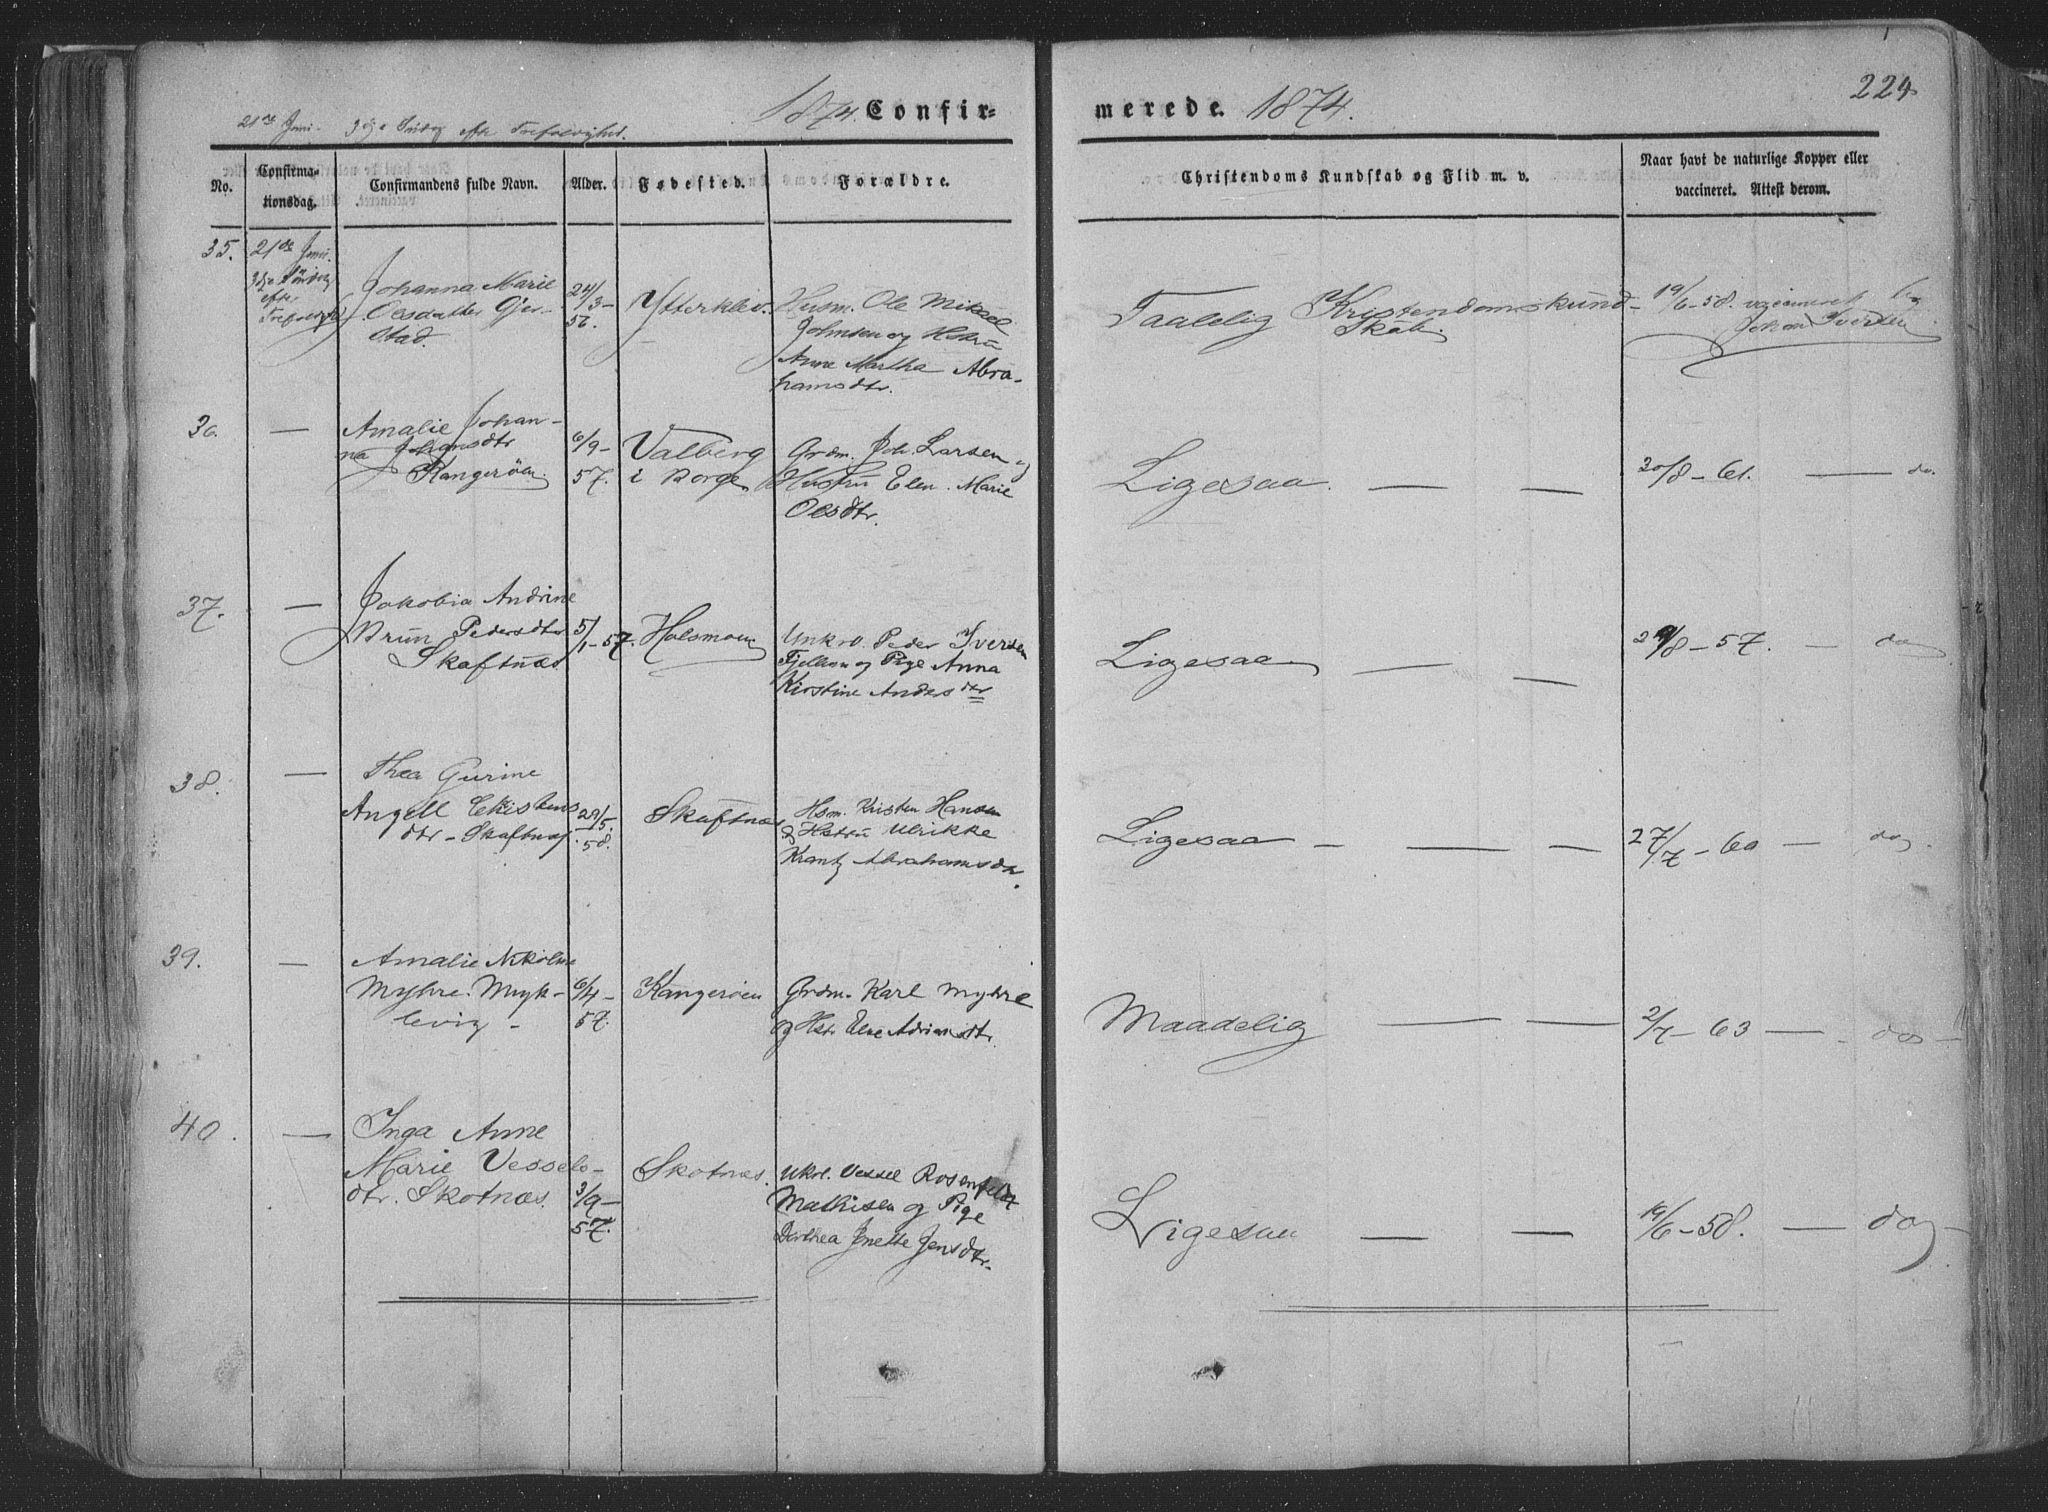 1874. Confir-
merede. 1874.
224
21de Juni. 3die Søndag efter Trefoldighed.
No.
Confirma-
tionsdag.
Confirmandens fulde Navn.
Alder.
Fødested.
Forældre.
Christendoms Kundskab og Flid m. v.
Naar havt de naturlige Kopper eller
vaccineret. Attest derom.
35.
21de Juni.
3die Søndag
efter
Johanna Marie
Olesdatter Gjer-
stad.
24/3-
Ytterkleiv.
Husm. Ole Mikael
Johnsen og Hstrü
Anne Martha Abra-
hamsdtr.
Taalelig Kristendomskund-
skab.
19/6-58. vaccineret
Johan Iversen
36.
—
Amalie Johan-
na Johansdtr
Kangerøen
6/9-
57.
Valberg
i Borge
Grdm. Joh. Larsen og
Hustrü Elen Marie
Olsdtr.
Ligesaa. — —
20/8-61. — do.
37.
—
Jakobia Andrine
Brün Pedersdtr
Skaftnæs
5/1-57.
Holsmoen
Unkrl. Peder Iversen
Fjellom og Pige Anna
Kirstine Andersdtr
Ligesaa — —
29/8-57. — do
38.
—
Thea Gurine
Angell Christens
dtr - Skaftnæs.
29/5.
58.
Skaftnæs
Hsm. Kristen Hansen
& Hstrü Ulrikke
Krantz Abrahamsdtr.
Ligesaa — — —
27/7-60 — do
39.
—
Amalie Nikoline
Myhre. Myk-
levig -
6/4-
57.
Kangerøen
Grdm. Karl Myhre
og Hstr. Else Adriansdtr.
Maadelig — —
2/7-63 — do
40.
—
Inga Anne
Marie Vessels-
dtr. Skotnæs.
3/9-
57.
Skotnæs.
Ukrl. Vessel Rosenfeldt
Mathisen og Pige
Dorthea Jnette Jensdtr.
Ligesaa — —
19/6-58. — do